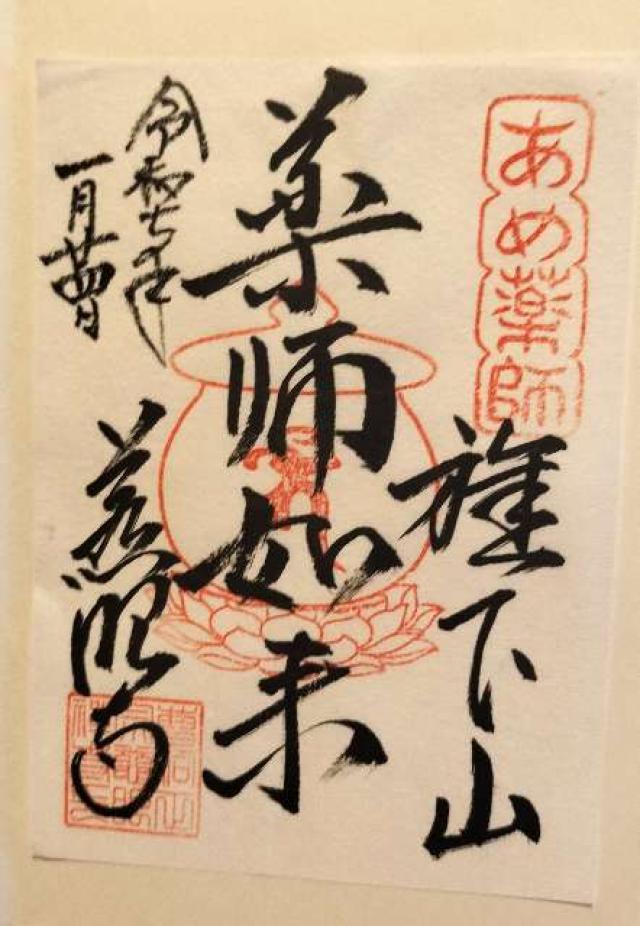 あめ薬師
下山
薬師如来
令和七年
一月廿四日
慈 寺